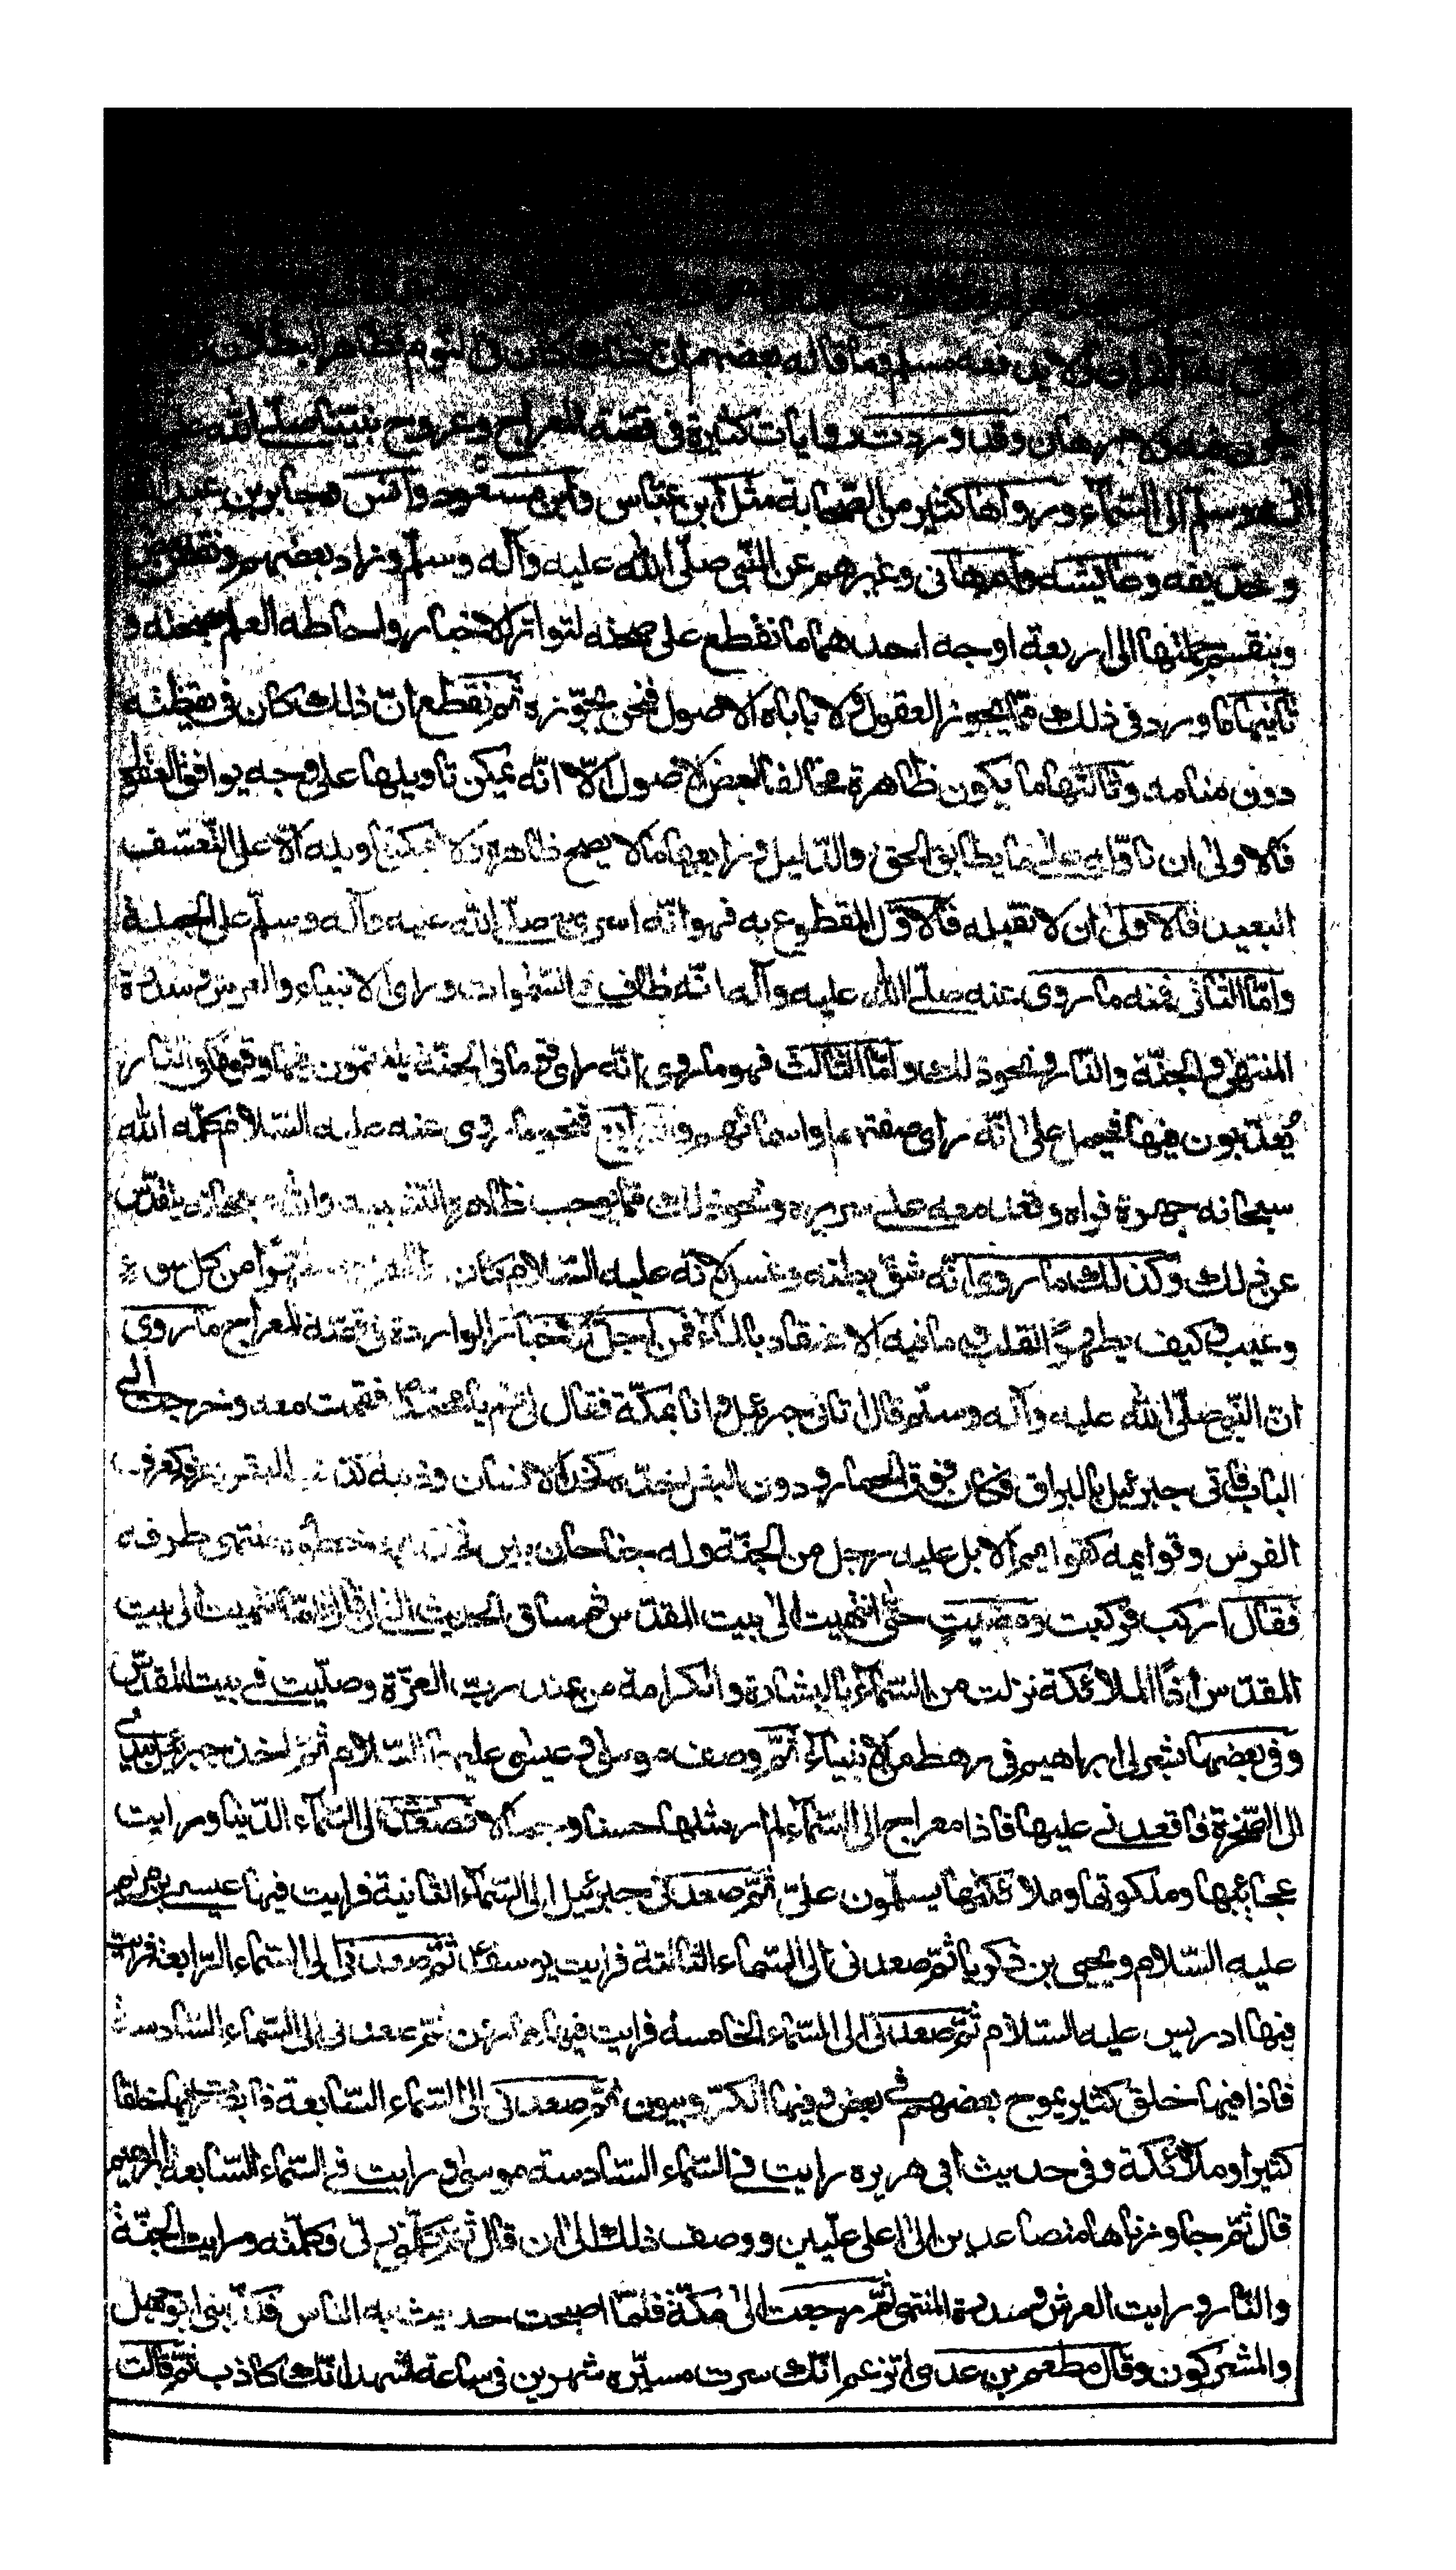 يدفعه مسلم وما قاله بعضهم ان ذلك كان في النوم فظاهر البطلان
ولا برهان وقد وردت روايات كثيرة في قصة المعراج وعروج نبينا صلى الله عليه
وآله وسلم الى السمآء ورواها كثير من الصحابة مثل ابن عباس وابن مسعود وانس وجابر بن عبد الله
وحذيفه وعايشه وام هانى وغيرهم عن النبى صلى الله عليه وآله وسلم وزاد بعضهم ونقص بعض
وينقسم جملتها الى اربعة اوجه احدهما ما نقطع على صحته لتواتر الاخبار واحاطه العلم بصحته و
ثانيها ما ورد في ذلك مما يجوزه العقول ولا ياباه الاصول فنحن نجوزه ثم نقطع ان ذلك كان في يقظته
دون منامه وثالثها ما يكون ظاهره مخالفا لبعض الاصول الا انه يمكن تاويلها على وجه يوافق العقول
فالاولى ان ناوله على ما يطابق الحق والدليل ورابعها ما لا يصح ظاهره ولا يمكن تاويله الا على التعسف
البعيد فالاولى ان لا نقبله فالاول المقطوع به فهو انه اسرى به صلى الله عليه وآله وسلم على الجملة
واما الثانى فمنه ما روى عنه صلى الله عليه وآله انه طاف في السموات وراى الانبياء والعرش وسدرة
المنتهى والجنة والنار ونحو ذلك واما الثالث فهو ما روى انه راى قوما فى الجنة يتنعمون فيها وقوما في النار
يعذبون فيها فيحمل على انه راى صفتهم او اسمائهم واما الرابع فنحو ما روى عنه عليه السلام كلمه الله
سبحانه جهرة فراه وقعد معه على سريره ونحو ذلك مما يوجب ظاهره التشبيه والله سبحانه يتقدس
عن ذلك وكذلك ما روى انه شق بطنه وغسل لانه عليه السلام كان طاهرا مطهرا من كل سوء
وعيب وكيف يطهر القلب وما فيه من الاعتقاد بالمآء فمن اجل الاخبار الواردة في قصة المعراج ما روى
ان النبى صلى الله عليه وآله وسلم قال اتانى جبرئيل وانا بمكة فقال لى قم يا محمد فقمت معه وخرجت الى
الباب فاتى جبرئيل بالبراق فكان فوق الحمار ودون البغل خده كخد الانسان وذنبه كذنب البقر وعرفه كعرف
الفرس وقوايمه كقوايم الابل عليه رحل من الجنة وله جناحان من فخذيه خطوه منتهى طرفه
فقال اركب فركبت ومضيت حتى انتهيت الى بيت المقدس ثم ساق الحديث الى ان قال فلما انتهيت الى بيت
المقدس اذا الملائكة نزلت من السمآء بالبشارة والكرامة من عند رب العزة وصليت في بيت المقدس
وفي بعضها بشر لى ابراهيم في رهط من الانبياء ثم وصف موسى وعيسى عليهما السلام ثم اخذ جبرئيل بيدى
الى الصخرة فاقعدنى عليها فاذا معراج الى السمآء لم ار مثلها حسنا وجمالا فصعدت الى السمآء الدنيا ورايت
عجايبها وملكوتها وملائكتها يسلمون على ثم صعد بى جبرئيل الى السمآء الثانية فرايت فيها عيسى بن مريم
عليه السلام ويحيى بن زكريا ثم صعد بى الى السماء الثالثة فرايت يوسف ثم صعد بى الى السماء الرابعة فرايت
فيها ادريس عليه السلام ثم صعد بى الى السماء الخامسة فرايت فيها هارون ثم صعد بى الى السماء السادسة
فاذا فيها خلق كثير يموج بعضهم في بعض وفيها الكروبيون ثم صعد بى الى السماء السابعة فابصرت فيها خلقا
كثيرا وملائكة وفى حديث ابى هريره رايت في السماء السادسة موسى ورايت في السماء السابعة ابراهيم
قال ثم جاوزناها متصاعدين الى اعلى عليين ووصف ذلك الى ان قال ثم كلمنى ربى وكلمته ورايت الجنة
والنار ورايت العرش وسدرة المنتهى ثم رجعت الى مكة فلما اصبحت حديث به الناس فكذبنى ابو جهل
والمشركون وقال مطعم بن عدى اتزعم انك سرت مسيره شهرين في ساعة اشهد انك كاذب ثم قالت